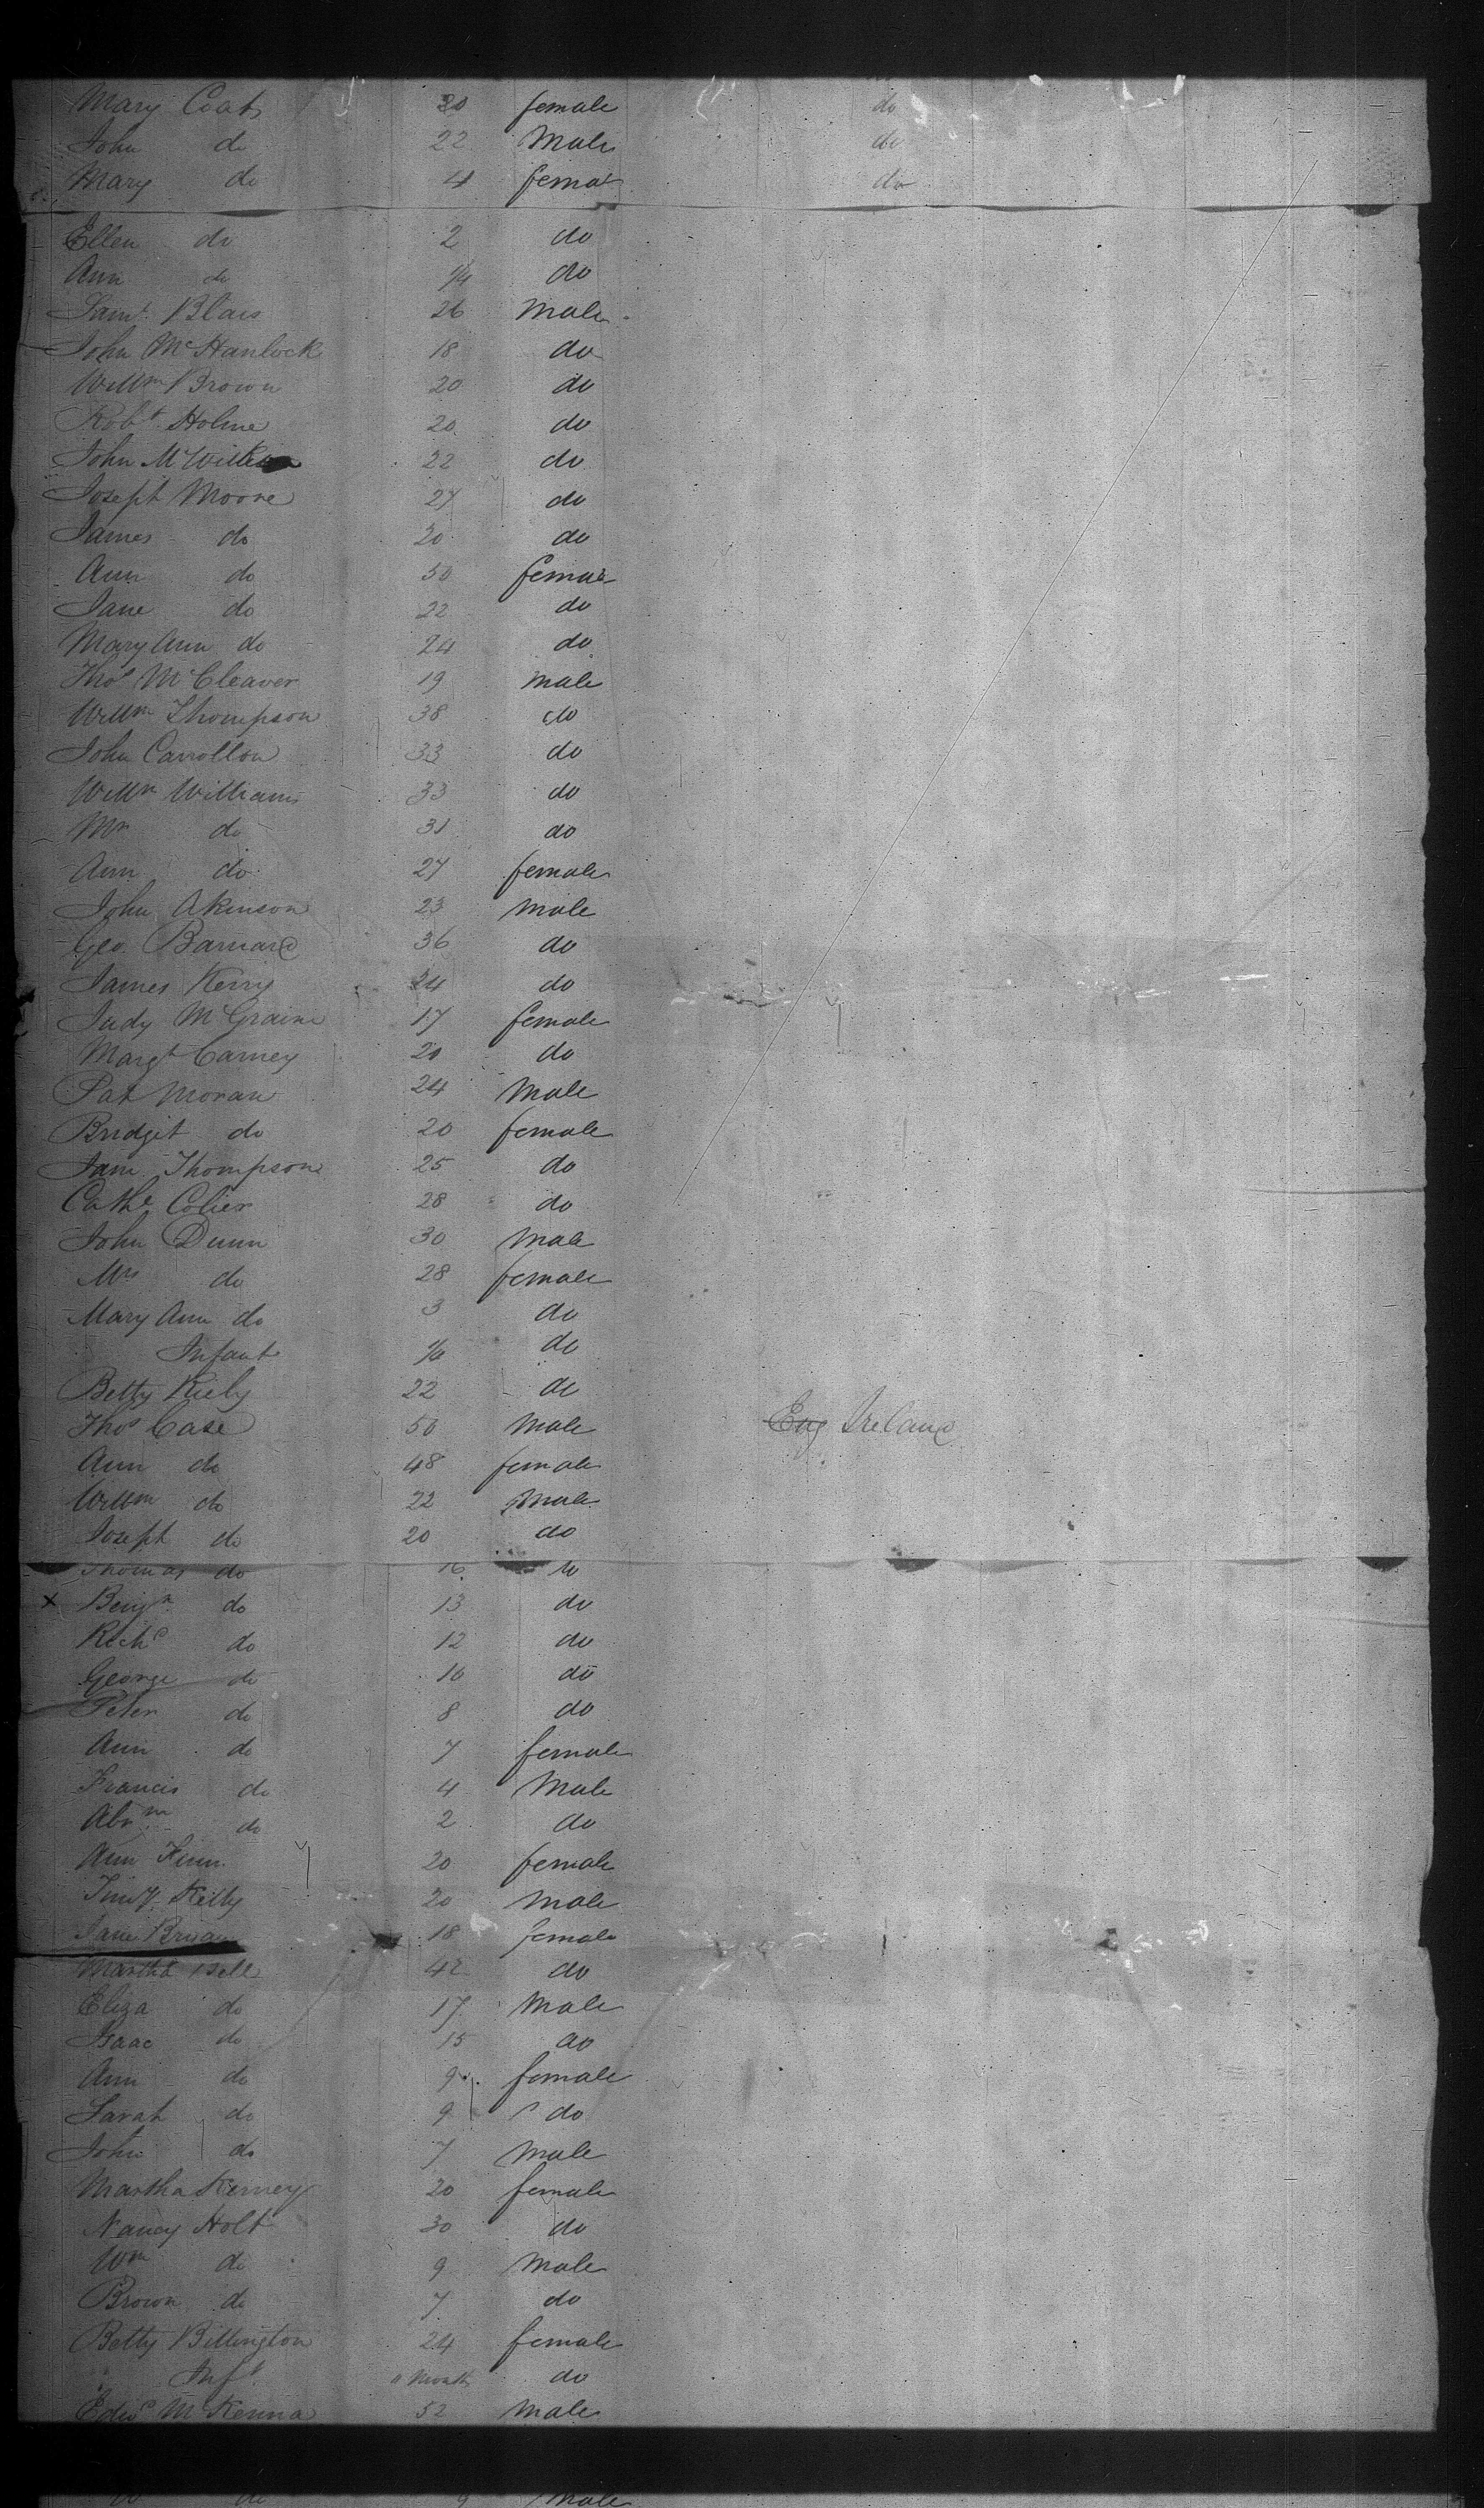 Mary Coats 30 female do
John do 22 Male do
Mary do 4 femal do
Ellen do 2 do
Ann do 1/4 do
Saml Blais 26 Male
John McHanlock 18 do
Willm Brown 20 do
Robt Holme 20 do
John 22 do
Joseph Moore 27 do
James do 20 do
Ann do 50 female
Jane do 22 do
Mary Ann do 24 do
Thos McCleaver 19 male
Willm Thompson 38 do
John Carrollon 33 do
Willm Williams 33 do
Mr do 31 do
Ann do 27 female
John Akinson 23 male
Geo Barnard 36 do
James Kerry 24 do
Judy McGraine 17 female
Margt Carney 20 do
Pat Moran 24 Male
Bridgit do 20 female
Jane Thompson 25 do
Cathe Colier 28 do
John Dunn 30 Male
Mrs do 28 female
Mary Ann do 3 do
Infant do
Betty Kiely 22 do
Thos Case 50 Male Eng Ireland
Ann do 48 female
Willm do 22 Male
Joseph do 20 do
Thomas do 16 do
x Benjn do 13 do
Richd do 12 do
George do 10 do
Peter do 8 do
Ann do 7 female
Francis do 4 Male
Abrm do 2 do
Ann 20 female
Timy Kelly 20 male
Jane 18 female
Martha Bell 42 do
Eliza do 17 Male
Isaac do 15 do
Ann do 9 female
Sarah do 9 do
John do 7 male
Martha Kerney 20 female
Nancy Holt 30 do
Wm do 9 Male
Brown do 7 do
Betty Billington 24 female
Inft month do
Edwd McKenna 52 Male
W do 9 Male